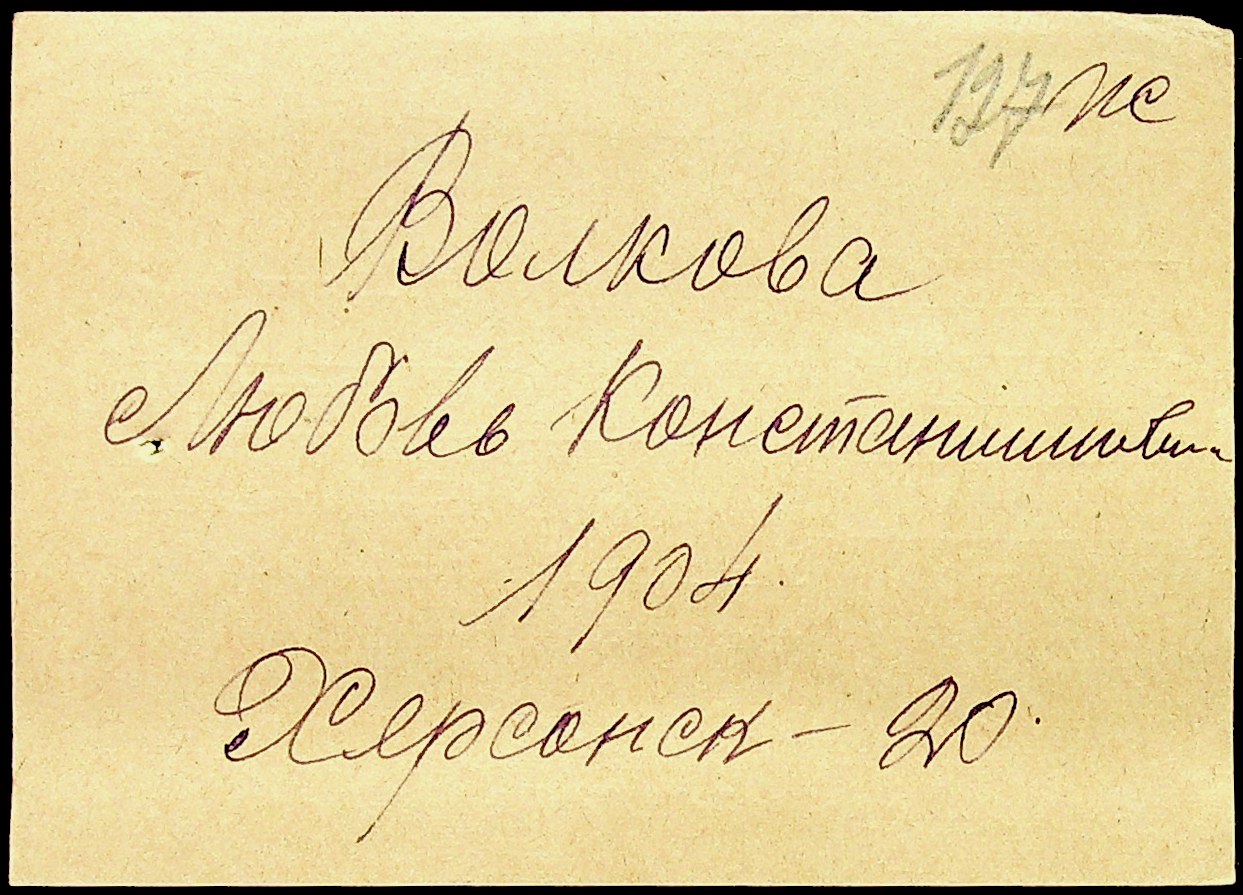 197 пс
Волкова
Любовь Константиновна
1904.
Херсонск - 20.